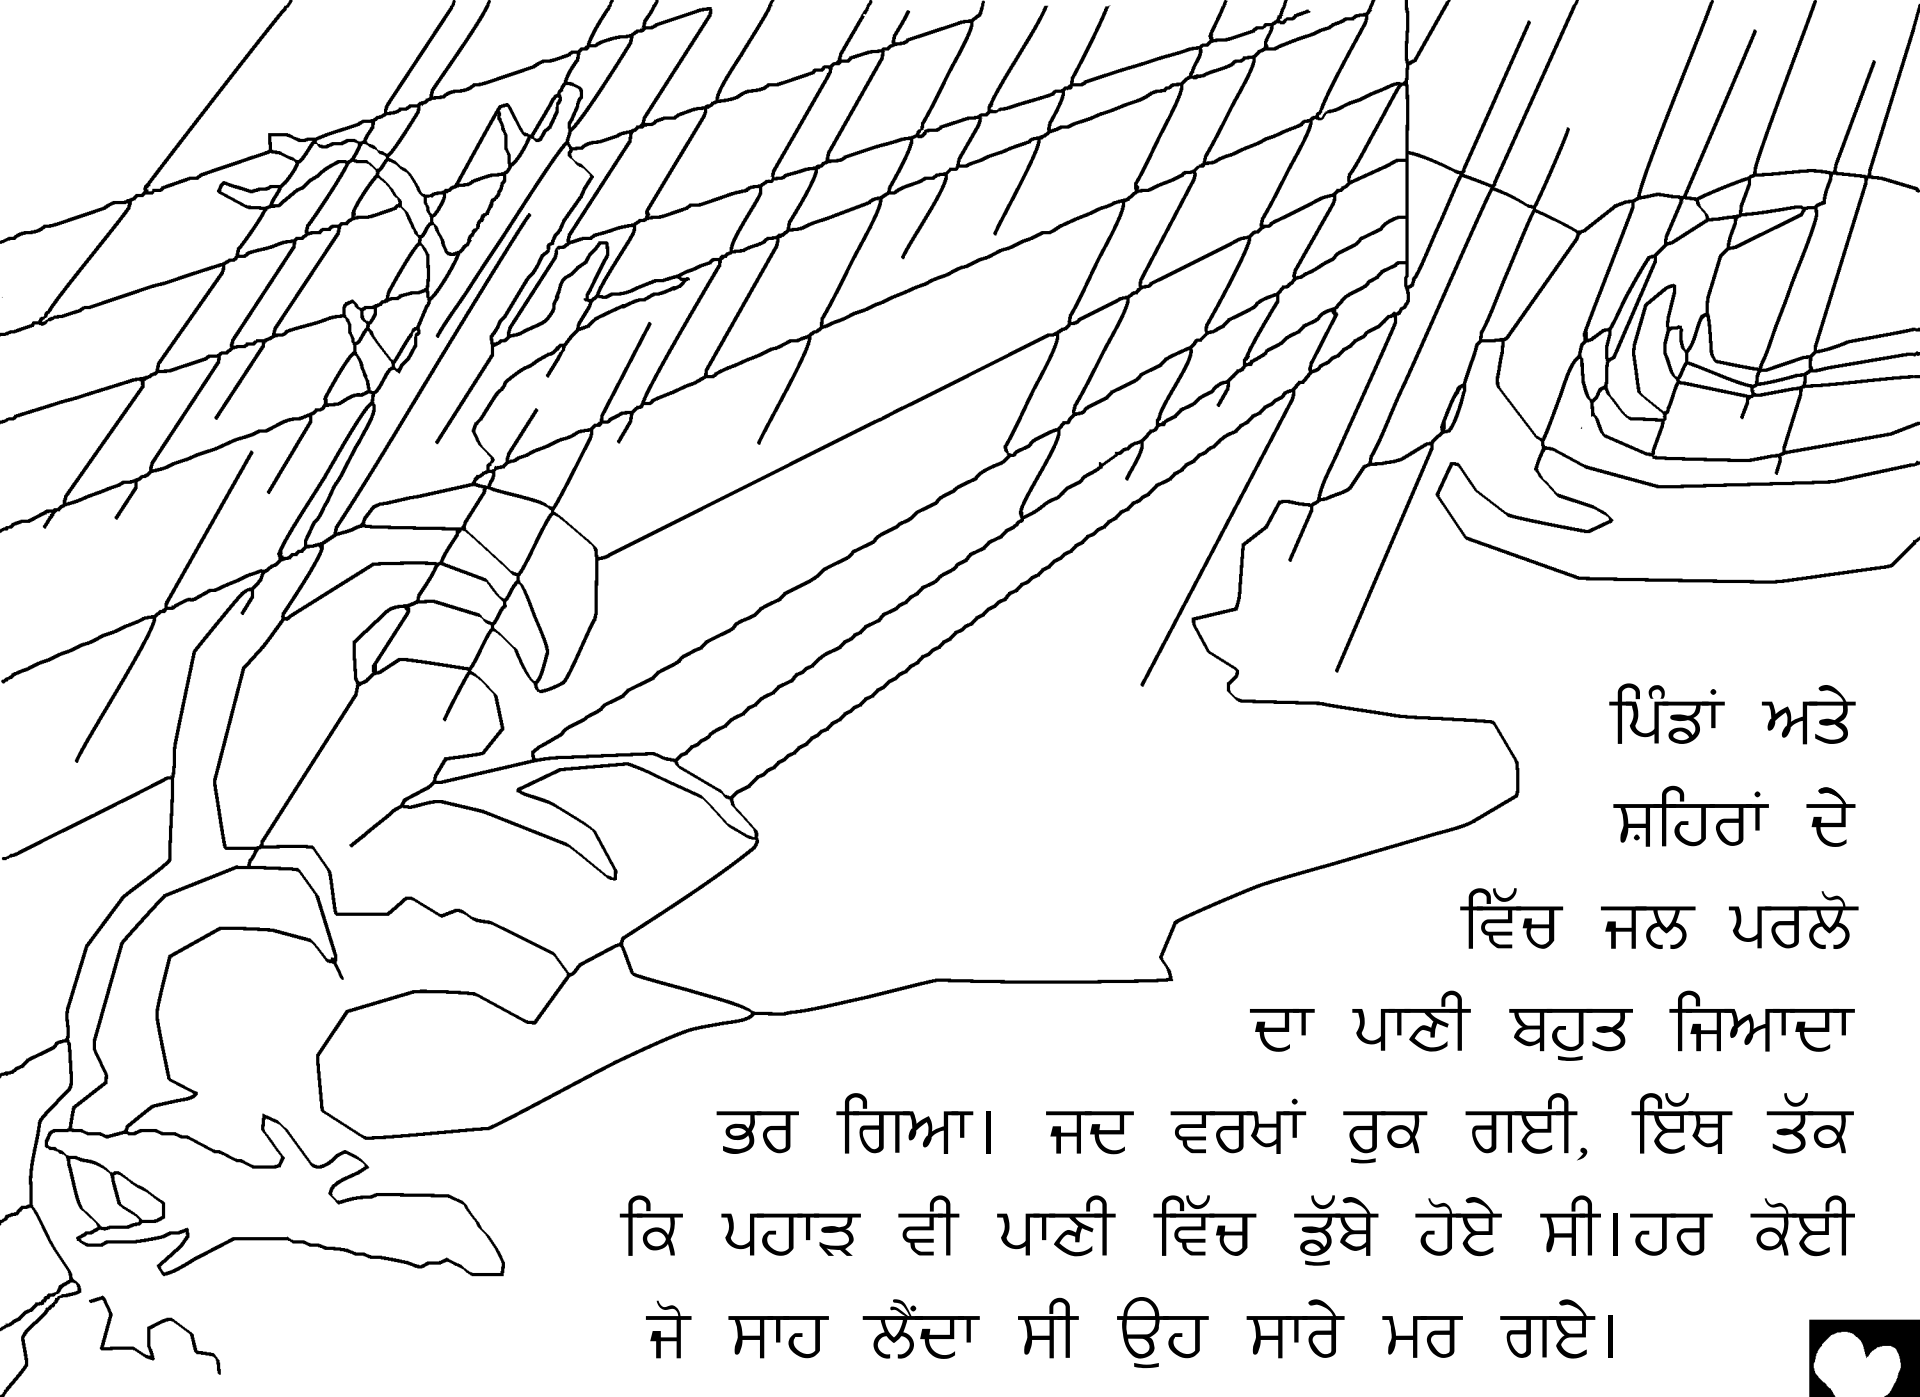 ਪਿੰਡਾਂ ਅਤੇ
ਸ਼ਹਿਰਾਂ ਦੇ
ਵਿੱਚ ਜਲ ਪਰਲੋ
ਦਾ ਪਾਣੀ ਬਹੁਤ ਜਿਆਦਾ
ਭਰ ਗਿਆ। ਜਦ ਵਰਖਾਂ ਰੁਕ ਗਈ, ਇੱਥ ਤੱਕ
ਕਿ ਪਹਾੜ ਵੀ ਪਾਣੀ ਵਿੱਚ ਡੁੱਬੇ ਹੋਏ ਸੀ।ਹਰ ਕੋਈ
ਜੋ ਸਾਹ ਲੈਂਦਾ ਸੀ ਉਹ ਸਾਰੇ ਮਰ ਗਏ।